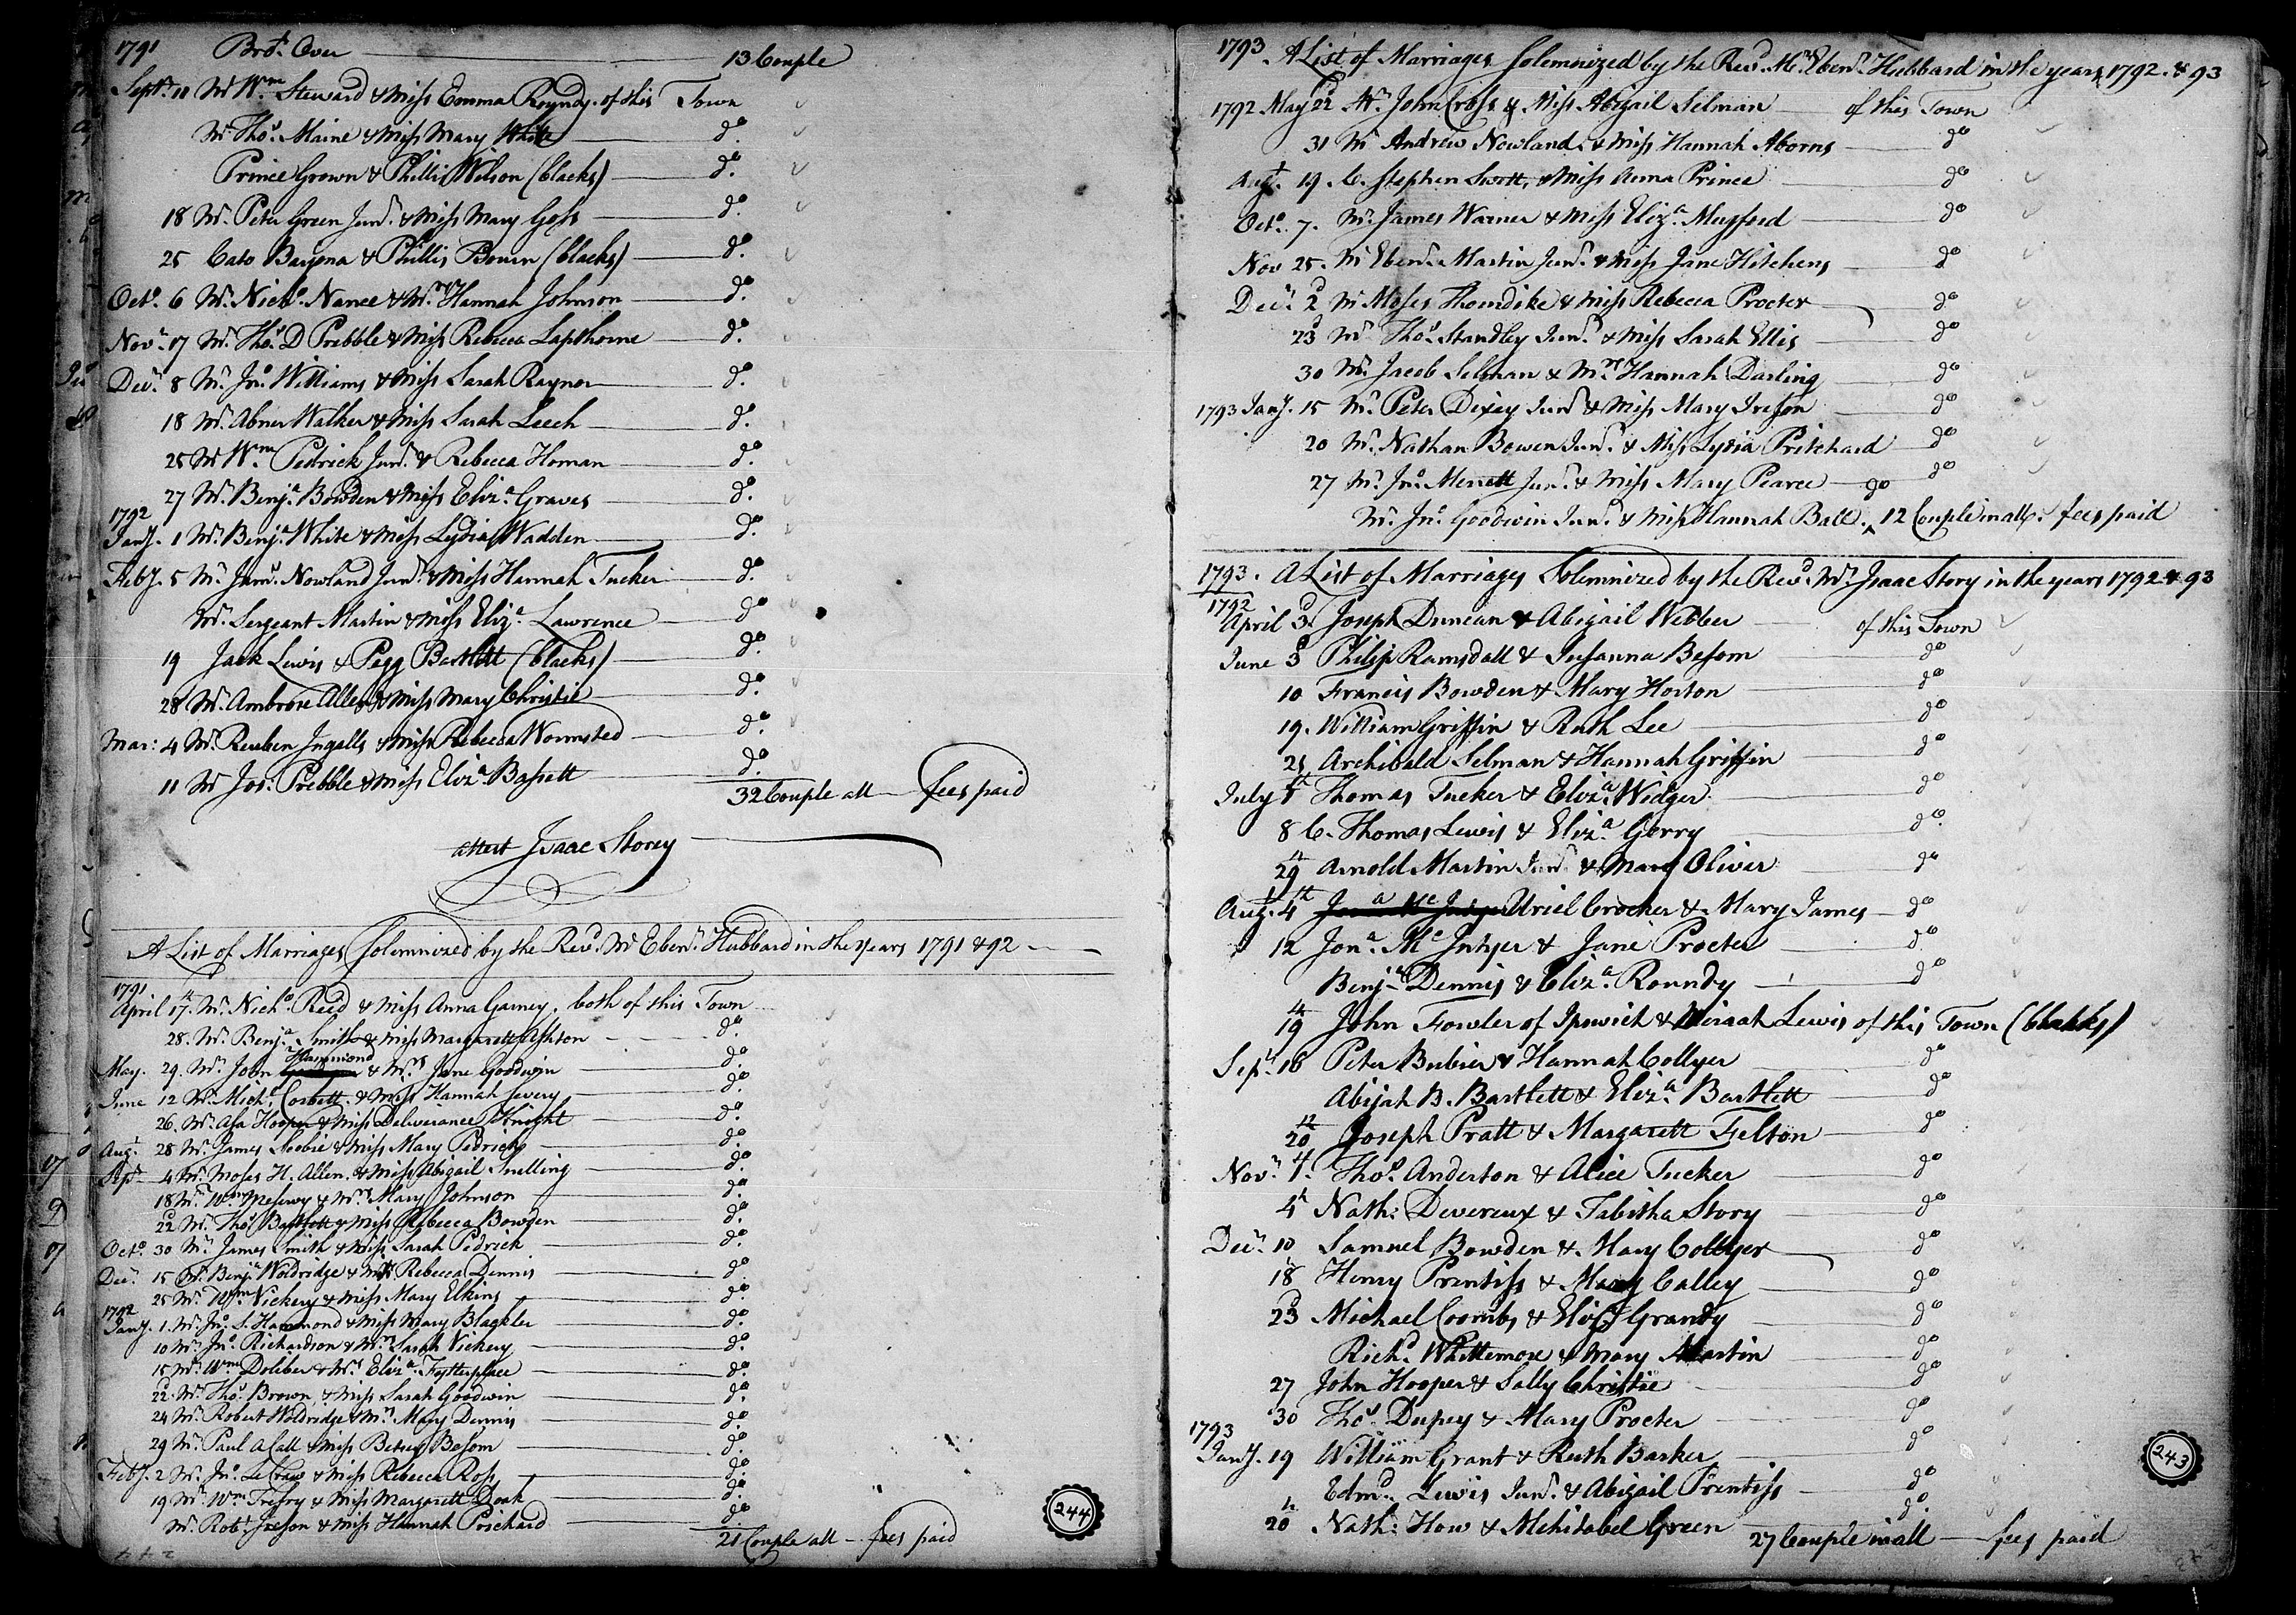 1791 Bro.t Over 13 Couple
Sept.r 11 Mr W.m Steward & Miss Emma Roundy. of this Town
Mr Tho.s Maine & Miss Mary White d.o
Prince Grown & Phillis Wilson (blacks) d.o
18 Mr. Peter Green Jun.r & Miss Mary Goss d.o
25 Cato Bayona & Phillis Bourn (blacks) d.o
Oct.o 6 Mr. Nich.o Nance & Mrs Hannah Johnson d.o
Nov.r 17 Mr. Tho.s D Prebble & Miss Rebecca Lapthorne d.o
Dec.r 8 Mr. Jno. Williams & Miss Sarah Raynor d.o
18 Mr. Abner Walker & Miss Sarah Leech d.o
25 Mr W.m Pedrick Jun.r & Rebecca Homan d.o
27 Mr. Benj.a Bowden & Miss Eliz.a Graves d.o
1792
Jan.y 1 Mr. Benj.a White & Miss Lydia Wadden d.o
Feb.y 5 Mr. Jam.s Nowland Jun.r & Miss Hannah Tucker d.o
Mr. Sergeant Martin & Miss Eliz.a Lawrence d.o
19 Jack Lewis & Pegg Bartlett (blacks) d.o
28 Mr. Ambrose Allen & Miss Mary Christie d.o
Mar: 4 Mr. Reuben Ingalls & Miss Rebecca Wormsted d.o
11 Mr Jos. Prebble & Miss Eliz.a Bassett d.o
32 Couple all fees paid
attest Isaac Storey
A List of Marriages Solemnized by the Rev.d Mr Eben.r Hubbard in the Years 1791 & 92
1791
April 17. Mr. Nich.o Reed & Miss Anna Garney, both of this Town
28. Mr. Benj.a Smith & Miss Margarett Ashton d.o
Hammond
May. 29. Mr. John & Mrs Jane Goodwin d.o
June 12 Mr. Mich.l Corbett & Miss Hannah Severy d.o
26. Mr. Asa Hooper & Miss Deliverance Knight d.o
Aug.t 28 Mr. James Scobie & Miss Mary Pedrick d.o
Sep.r 4 Mr. Moses H. Allen. & Miss Abigail Snelling d.o
18 Mr. W.m Meservy & Mrs Mary Johnson d.o
22 Mr. Tho.s Bartlett & Miss Rebecca Bowden d.o
Oct.o 30 Mr. James Smith & Miss Sarah Pedrick d.o
Dec.r 15 Mr. Benj.a Woldridge & Miss Rebecca Dennis d.o
25 Mr. W.m Vickery & Miss Mary Elkins d.o
1792
Jan.y 1. Mr. Jno. S. Hammond & Miss Mary Blackler d.o
10 Mr. Jno. Richardson & Mrs Sarah Vickery d.o
15 Mr. W.m Doliber & Mrs Eliz.a Fetterplace d.o
22. Mr. Tho.s Brown & Miss Sarah Goodwin d.o
24 Mr. Robert Woldridge & Mrs Mary Dennis d.o
29 Mr. Paul Acall & Miss Betsey Besom d.o
Feb.y 2 Mr. Jno. LeCraw & Miss Rebecca Ross d.o
19 Mr. W.m Trefry & Miss Margarett Doak d.o
Mr. Rob.t Ireson & Miss Hannah Prichard d.o
21 Couple all - fees paid
244
1793. A List of Marriages Solemnized by the Rev.d Mr. Eben.r Hubbard in the years 1792. & 93
1792 May 22 Mr. John Cross & Miss Abigail Selman of this Town
31 Mr Andrew Nowland & Miss Hannah Aborns d.o
Aug.t 19. C. Stephen Swett, & Miss Anna Prince d.o
Oct.o 7. Mr. James Warner & Miss Eliz.a Mugford d.o
Nov 25. Mr Eben.r Martin Jun.r & Miss Jane Hitchens d.o
Dec.r 2 Mr Moses Thorndike & Miss Rebecca Procter d.o
23 Mr Tho.s Standley Jun.r & Miss Sarah Ellis d.o
30 Mr. Jacob Selman & Mrs Hannah Darling d.o
1793 Jan.y 15 Mr. Peter Dixey Jun.r & Miss Mary Ireson d.o
20 Mr. Nathan Bowen Jun.r & Miss Lydia Pritchard d.o
27 Mr. Jno. Merrett Jun.r & Miss Mary Pearce d.o
Mr. Jno. Goodwin Jun.r & Miss Hannah Ball. ^ do 12 Couple in all. fees paid
1793. A List of Marriages Solemnized by the Rev.d Mr. Isaac Story in the years 1792 & 93
1792
April 3d Joseph Duncan & Abigail Webber of this Town
June 3 Philip Ramsdall & Susanna Besom d.o
10 Francis Bowden & Mary Horton d.o
19. William Griffin & Ruth Lee d.o
21 Archibald Selman & Hannah Griffin d.o
July 5 Thomas Tucker & Eliz.a Widger d.o
8 C. Thomas Lewis & Eliz.a Gerry d.o
29 Arnold Martin Jun.r & Mary Oliver d.o
Aug.t 4 Uriel Crocker & Mary James d.o
12 Jon.a Mc Intyer & Jane Procter d.o
Benj.a Dennis & Eliz.a Roundy d.o
19 John Fowler of Ipswich & Lewis of this Town (blacks)
Sep.r 16 Peter Bubier & Hannah Collyer d.o
Abijah B. Bartlett & Eliz.a Bartlett d.o
20 Joseph Pratt & Margarett Felton d.o
Nov.r 1. Tho.s Anderton & Alice Tucker d.o
4 Nath: Devereux & Tabitha Story d.o
Dec.r 10 Samuel Bowden & Mary Collyer d.o
18 Henry Prentiss & Mary Calley d.o
23 Michael Coombs & Eliz. Grandy d.o
Rich.d Whittemore & Mary Martin d.o
27 John Hooper & Sally Christie d.o
30 Tho.s Dupey & Mary Procter d.o
1793
Jan.y 19 William Grant & Ruth Barker d.o
Edm.d Lewis Jun.r & Abigail Prentiss d.o
20 Nath: How & Mehitabel Green d.o
27 Couple in all fees paid
243